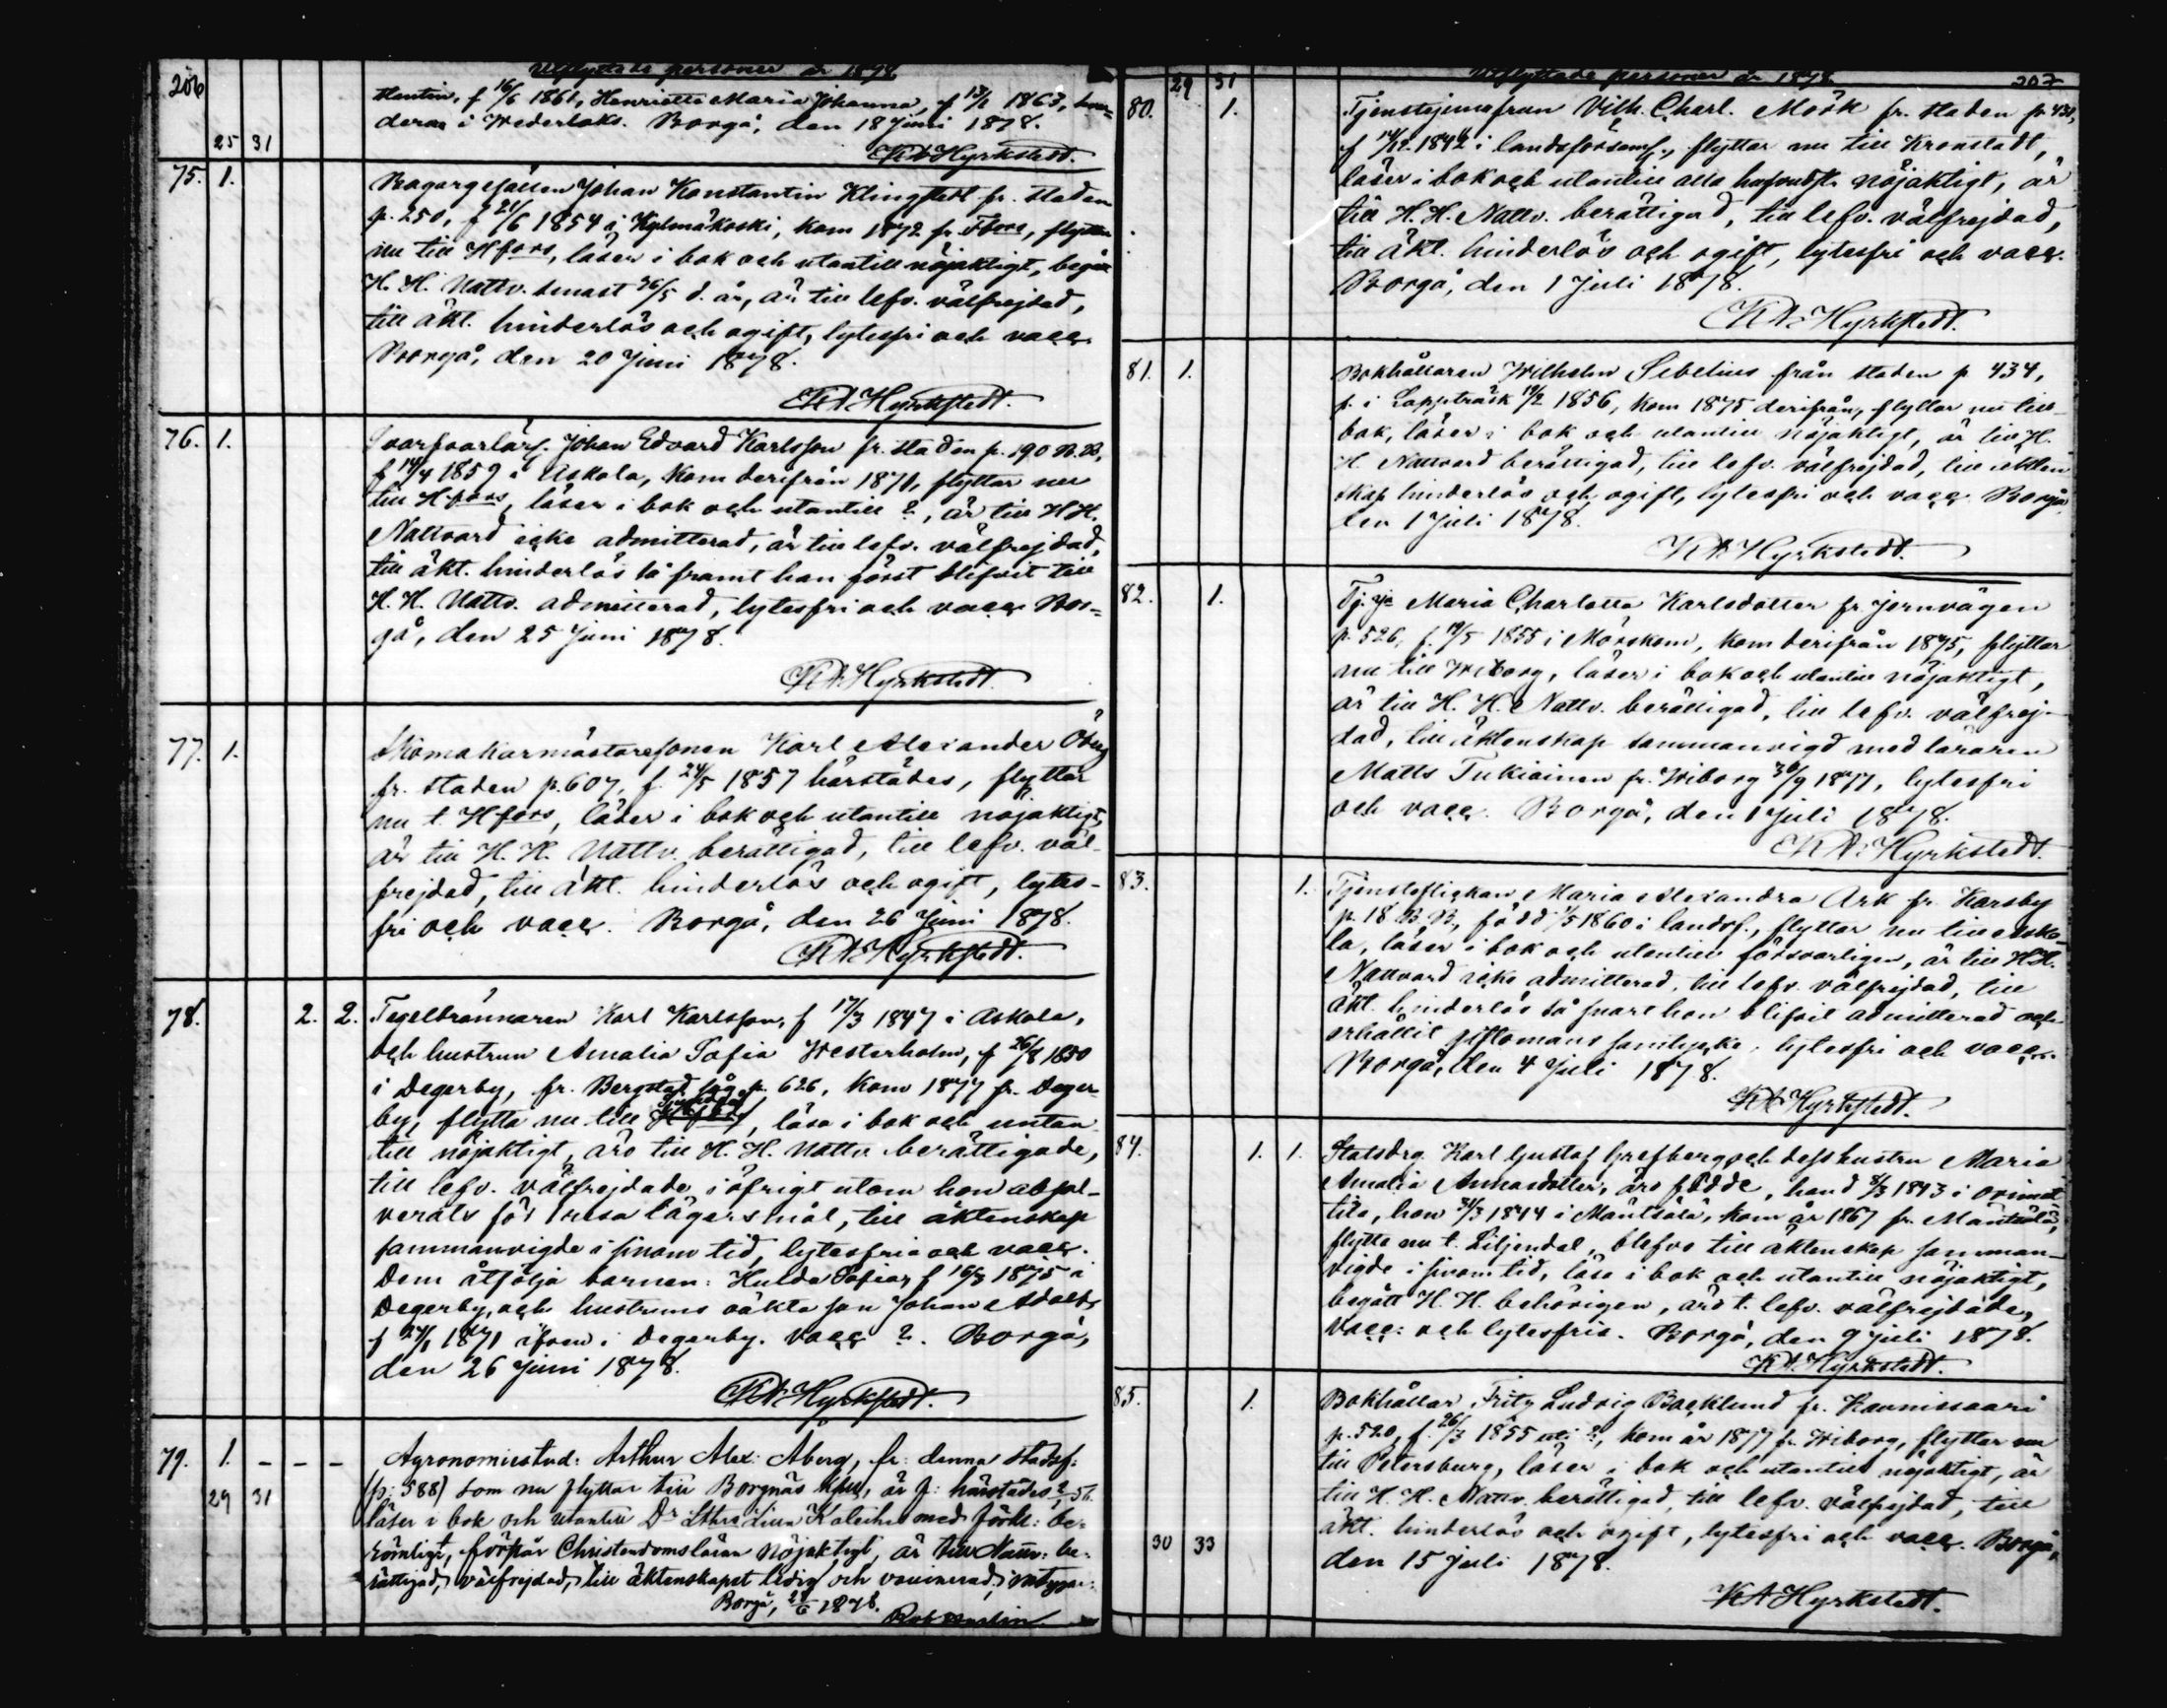 206
Utflyttade personer år 1878
f 16/6 1861, Henrietta Maria Johanna, f 1863,
deras i Wederlaks. Borgå, den 18 Juni 1878.
25 31
KA Hyrkstedt.
75. 1. Bagargesällen Johan Konstantin Klingstedt fr. staden
p. 250, f 21/6 1854 i Kylmäkoski, kom 1872 fr. flyttar
nu till Hfors, läser i bok och utantill nöjaktigt, begått
H. H. Nattv. senast 26/5 d. år, är till lefv. välfrejdad,
till äkt. hinderlös och ogift, lytesfri och vacc.
Borgå, den 20 Juni 1878.
KA Hyrkstedt.
76. 1. Svarfvarlärl. Johan Edvard Karlsson fr. staden p. 190
f 14/4 1859 i Askola, kom derifrån 1871, flyttar nu
till Hfors, läser i bok och utantill ?, är till H. H.
Nattvard icke admitterad, är till lefv. välfrejdad,
till äkt. hinderlös så framt han först blifvit till
H. H. Nattv. admitterad, lytesfri och vacc. Bor-
gå, den 25 Juni 1878.
KA Hyrkstedt.
77. 1. Skomakarmästaresonen Karl Alexander Öberg
fr. staden p. 607, f. 24/5 1857 härstädes, flyttar
nu t. Hfors, läser i bok och utantill nöjaktigt,
är till H. H. Nattv. berättigad, till lefv. väl-
frejdad, till äkt. hinderlös och ogift, lytes-
fri och vacc. Borgå, den 26 Juni 1878.
KA Hyrkstedt.
78. 2. 2. Tegelbrännaren Karl Karlsson, f 17/3 1847 i Askola,
och hustrun Amalia Sofia Westerholm, f 26/8 1850
i Degerby, fr. Bergstad p. 626, kom 1877 fr. Deger-
by, flytta nu till läsa i bok och utan
till nöjaktigt, äro till H. H. Nattv berättigade,
till lefv. välfrejdade i öfrigt utom hon absol-
verats för 1 resa lägersmål, till äktenskap
sammanvigde i sinom tid, lytesfria och vacc.
Dem åtfölja barnen: Hulda Sofia, f 16/3 1875 i
Degerby, och hustruns oäkta son Johan Adolf,
f 24/1 1871 äfven i Degerby. Vacc ?. Borgå,
den 26 Juni 1878.
KA Hyrkstedt.
79. 1. – – – Agronomiestud: Arthur Alex: Åberg, fr: denna stadsf:
(p: 588) som nu flyttar till Borgnäs är f: härstädes
29 31
läser i bok och utantill Dr Luthers Lilla Kateches med förkl: be-
römligt, förstår Christendomsläran nöjaktigt, är till Nattv: be-
rättigad, välfrejdad, till äktenskapet ledig och vaccinerad, intygar:
Borgå, 28/6 1878.
29 31
Utflyttade personer år 1878
207
80. 1. Tjenstejungfrun Vilh. Charl. Mörk fr. staden p. 431,
f 1842 i landsförsaml., flyttar nu till Kronstadt,
läser i bok och utantill alla hufvudst. nöjaktigt, är
till H. H. Nattv. berättigad, till lefv. välfrejdad,
till äkt. hinderlös och ogift, lytesfri och vacc.
Borgå, den 1 Juli 1878.
KA Hyrkstedt.
81. 1. Bokhållaren Wilhelm Sebelius från staden p 434,
f. i Lappträsk 19/2 1856, kom 1875 derifrån, flyttar nu till-
bak, läser i bok och utantill nöjaktigt, är till H.
H. Nattvard berättigad, till lefv. välfrejdad, till äkten
skap hinderlös och ogift, lytesfri och vacc. Borgå
den 1 Juli 1878.
KA Hyrkstedt.
82. 1. Tj. Maria Charlotta Karlsdotter fr. jernvägen
p. 526, f. 19/5 1855 i Mörskom, kom derifrån 1875, flyttar
nu till Wiborg, läser i bok och utantill nöjaktigt,
är till H. H. Nattv. berättigad, till lefv. välfrej-
dad, till äktenskap sammanvigd med läraren
Matts Tukiainen fr. Wiborg 30/9 1877, lytesfri
och vacc. Borgå, den 1 Juli 1878.
KA Hyrkstedt.
83. 1. Tjensteflickan Maria Alexandra Ark fr. Karsby
p. 18 B. B., född 1/5 1860 i landsf., flyttar nu till Asko-
la, läser i bok och utantill försvarligen, är till H. H.
Nattvard icke admitterad, till lefv. välfrejdad, till
äkt. hinderlös så snart hon blifvit admitterad och
erhållit giftomans samtycke, lytesfri och vacc.
Borgå, den 4 Juli 1878.
KA Hyrkstedt.
84. 1. 1. Statsdrg. Karl Gustaf Grefberg och dess hustru Maria
Amalia Annasdotter, äro födde, han d 8/3 1843 i Orimat
tila, hon 31/3 1844 i Mäntsälä, kom år 1867 fr. Mäntsälä,
flytta nu t. Liljendal, blefvo till äktenskap samman-
vigde i sinom tid, läsa i bok och utantill nöjaktigt,
begått H. H. behörigen, äro t. lefv. välfrejdade,
vacc: och lytesfria. Borgå, den 9 Juli 1878.
KA Hyrkstedt.
85. 1. Bokhållar Fritz Ludvig Backlund fr. Haunissaari
p. 520, f. 26/3 1855 i ?, kom år 1877 fr. Wiborg, flyttar nu
till Petersburg, läser i bok och utantill nöjaktigt, är
till H. H. Nattv. berättigad, till lefv. välfrejdad, till
30 33
äkt. hinderlös och ogift, lytesfri och vacc. Borgå,
den 15 Juli 1878.
KA Hyrkstedt.